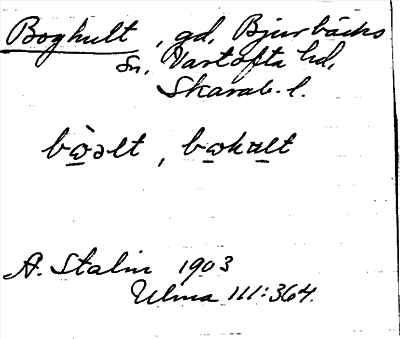 Boghult, gd, Bjurbäcks
sn, Vartofta hd,
Skarab. l.
bò̲əlt, bωkult
A. Stalin 1903
Ulma 111:364.